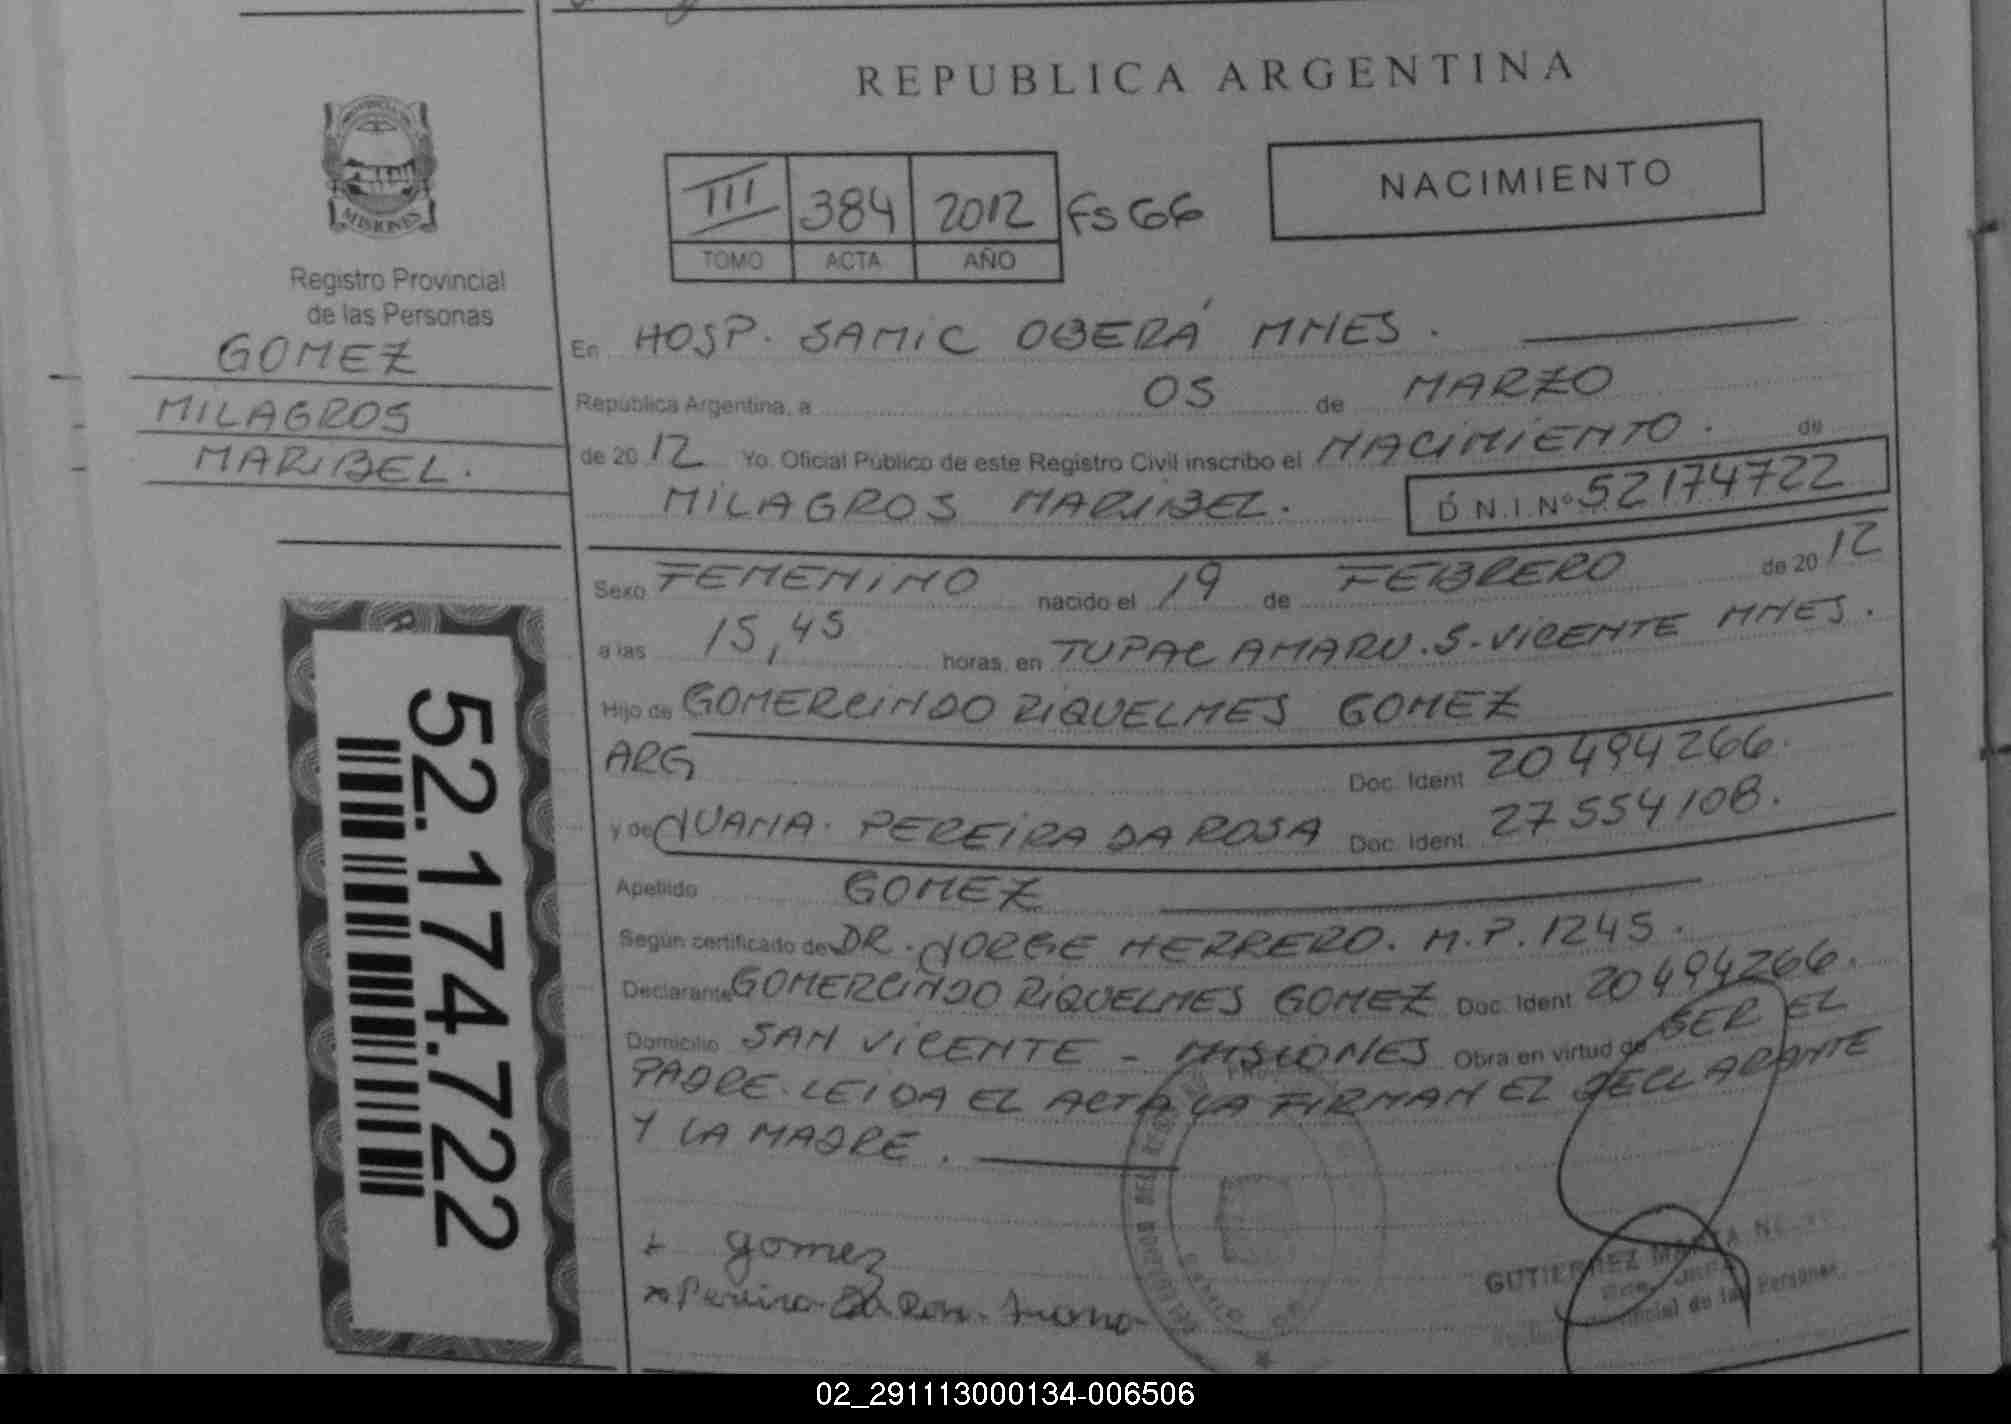 MISIONES
Registro Provincial
de las Personas
GOMEZ
MILAGROS
MARIBEL.
52.174.722
REPUBLICA ARGENTINA
III 384 2012 FS 66
TOMO ACTA AÑO
NACIMIENTO
En HOSP. SAMIC OBERÁ MNES.
República Argentina, a 05 de MARZO
de 2012 Yo, Oficial Público de este Registro Civil inscribo el NACIMIENTO. de
MILAGROS MARIBEL. D.N.I.Nº 52174722
Sexo FEMENINO nacido el 19 de FEBRERO de 2012
a las 15,45 horas, en TUPAC AMARU. S. VICENTE MNES.
Hijo de GOMERCINDO RIQUELMES GOMEZ
ARG Doc. Ident. 20494266.
y de JUANA. PEREIRA DA ROSA Doc. Ident. 27554108.
Apellido GOMEZ
Según certificado de DR. JORGE HERRERO. M.P. 1245.
Declarante GOMERCINDO RIQUELMES GOMEZ Doc. Ident. 20494266.
Domicilio SAN VICENTE - MISIONES Obra en virtud de SER EL
PADRE. LEIDA EL ACTA LA FIRMAN EL DECLARANTE
Y LA MADRE.
gomez
Pereira Da Rosa
GUTIERREZ
02_291113000134-006506